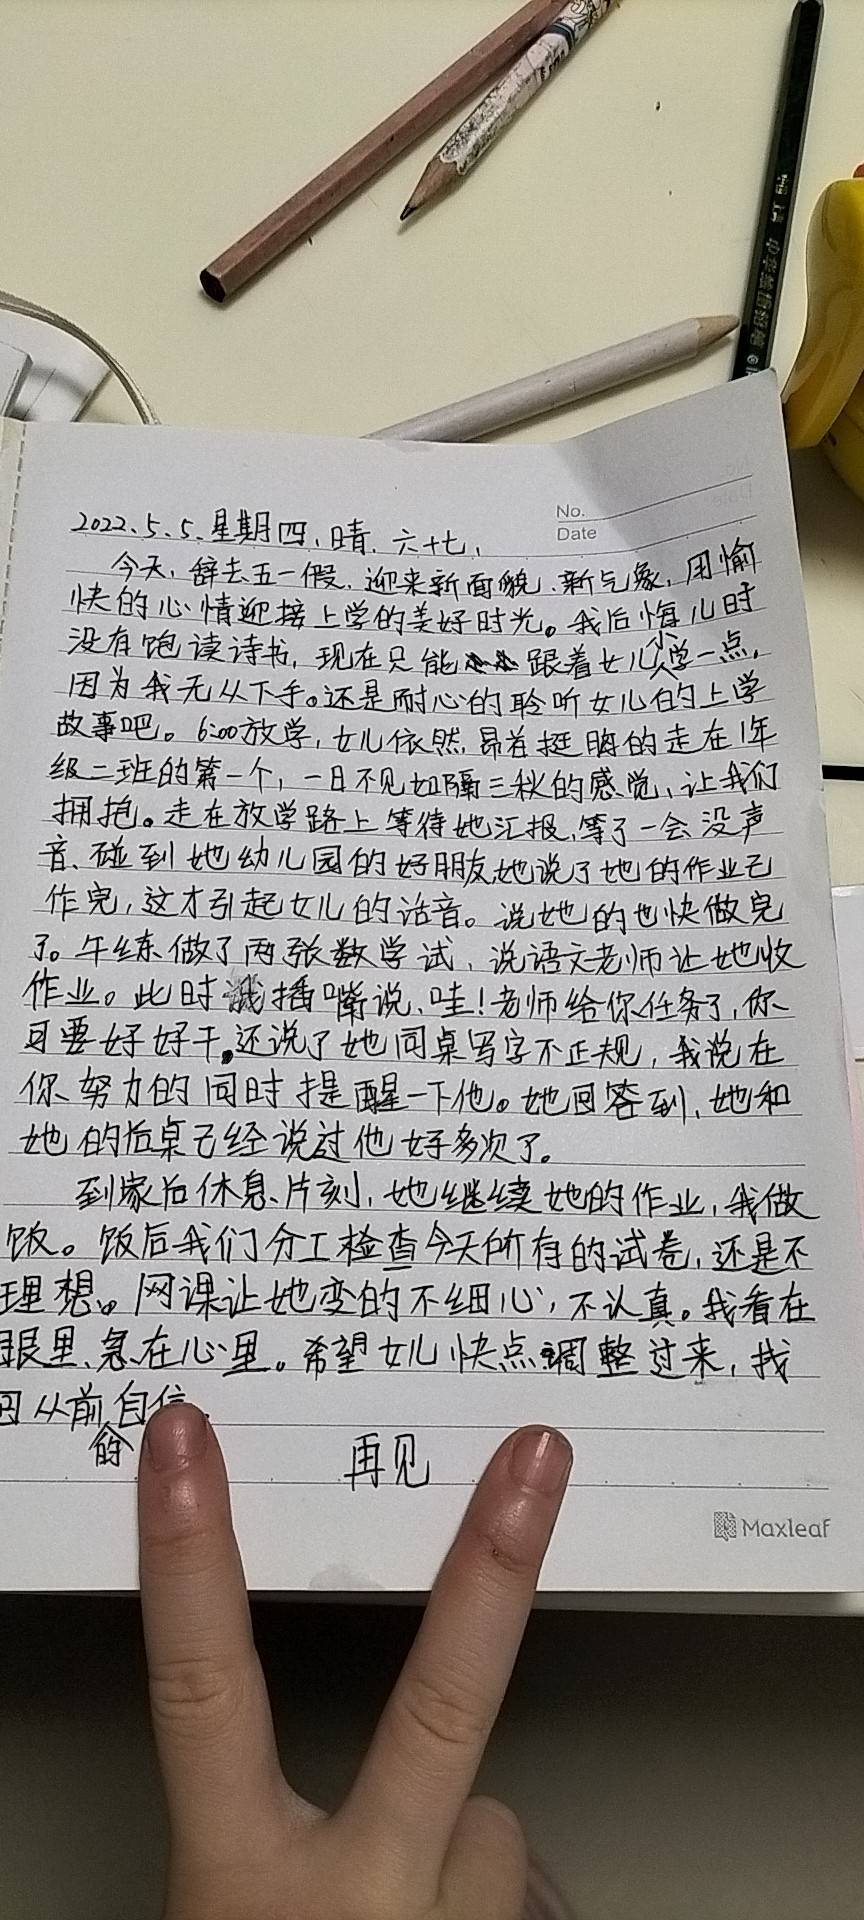 中华绘图铅笔
No.
Date
2022、5、5、星期四，晴，六十七，
今天，辞去五一假，迎来新面貌，新气象，用愉
快的心情迎接上学的美好时光。我后悔儿时
没有饱读诗书，现在只能跟着女儿少学一点，
因为我无从下手。还是耐心的聆听女儿的上学
故事吧。6:00放学，女儿依然昂首挺胸的走在1年
级二班的第一个，一日不见如隔三秋的感觉，让我们
拥抱。走在放学路上等待她汇报，等了一会没声
音、碰到她幼儿园的好朋友，她说了她的作业已
作完，这才引起女儿的话音。说她的也快做完
了。午练做了两张数学试，说语文老师让她收
作业。此时我插嘴说，哇！老师给你任务了，你
可要好好干，还说了她同桌写字不正规，我说在
你努力的同时提醒一下他。她回答到，她和
她的后桌已经说过他好多次了。
到家后休息片刻，她继续她的作业，我做
饭。饭后我们分工检查今天所有的试卷，还是不
理想。网课让她变的不细心，不认真。我看在
眼里、急在心里。希望女儿快点调整过来，找
回从前的自信
再见
Maxleaf